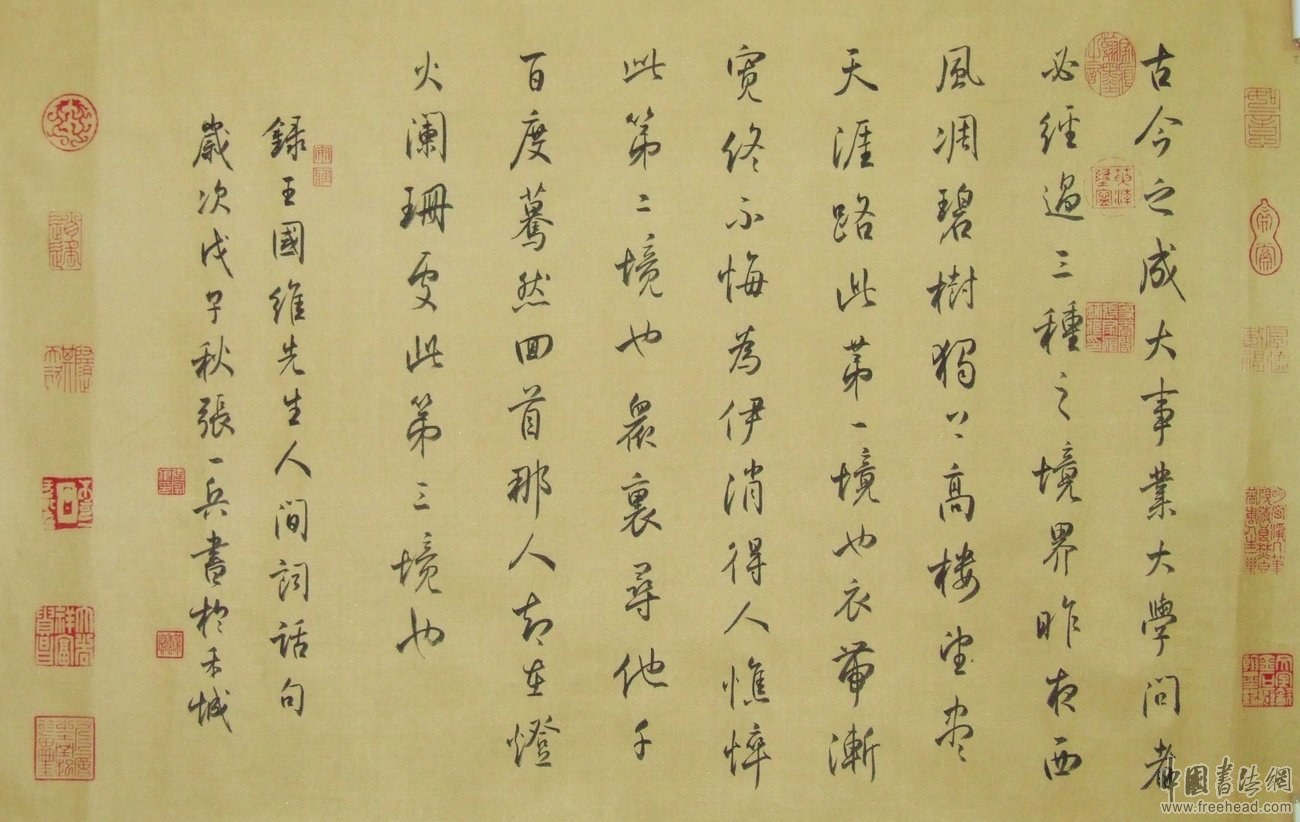 古今之成大事業大學問者
必經過三種之境界昨夜西
風凋碧樹獨上高樓望盡
天涯路此第一境也衣帶漸
寬終不悔為伊消得人憔悴
此第二境也眾裏尋他千
百度驀然回首那人却在燈
火闌珊處此第三境也
錄王國維先生人間詞話句
歲次戊子秋張一兵書於禾城
中國書法網
www.freehead.com